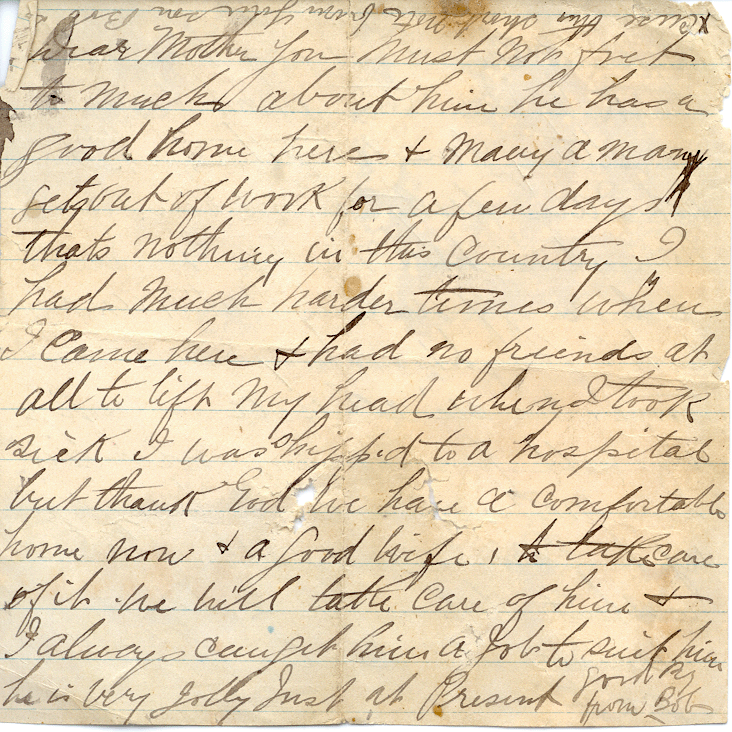 Excuse this short note from your son Bob
Dear Mother you must not fret
to much about him he has a
good home here & many a man
gets out of work for a few days
thats nothing in this country I
had much harder times when
I came here & had no friends at
all to lift my head when I took
sick I was shipped to a hospital
but thank God we have a comfortable
home now & a good wife, to take care
of it we will take care of him &
I always can get him a Job to suit him
he is very Jolly Just at Present
good by
from Bob